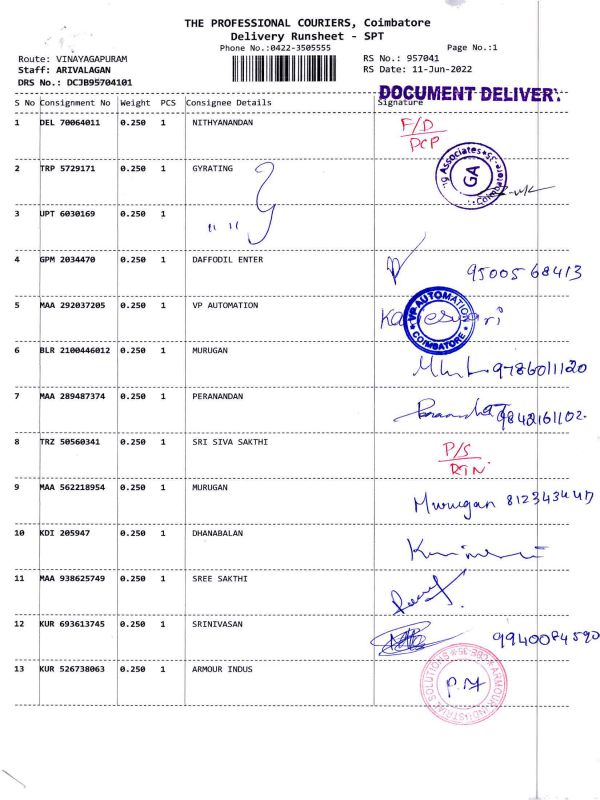 THE PROFESSIONAL COURIERS, Coimbatore
Delivery Runsheet - SPT
Phone No.:0422-3505555
Page No.:1
Route: VINAYAGAPURAM
RS No.: 957041
Staff: ARIVALAGAN
RS Date: 11-Jun-2022
DRS No.: DCJB95704101
DOCUMENT DELIVER
S No Consignment No Weight PCS Consignee Details Signature
1 DEL 70064011 0.250 1 NITHYANANDAN F/D
PCP
2 TRP 5729171 0.250 1 GYRATING
Associates
GA
3 UPT 6030169 0.250 1
" "
4 GPM 2034470 0.250 1 DAFFODIL ENTER 9500568413
5 MAA 292037205 0.250 1 VP AUTOMATION
VP AUTOMATION
COIMBATORE
6 BLR 2100446012 0.250 1 MURUGAN 9786011120
7 MAA 289487374 0.250 1 PERANANDAN 9842161102.
8 TRZ 50560341 0.250 1 SRI SIVA SAKTHI P/S
RTN
9 MAA 562218954 0.250 1 MURUGAN Murugan
10 KDI 205947 0.250 1 DHANABALAN
11 MAA 938625749 0.250 1 SREE SAKTHI
12 KUR 693613745 0.250 1 SRINIVASAN 9940084590
13 KUR 526738063 0.250 1 ARMOUR INDUS
ARMOUR INDUSTRIAL SOLUTIONS
CBE-35